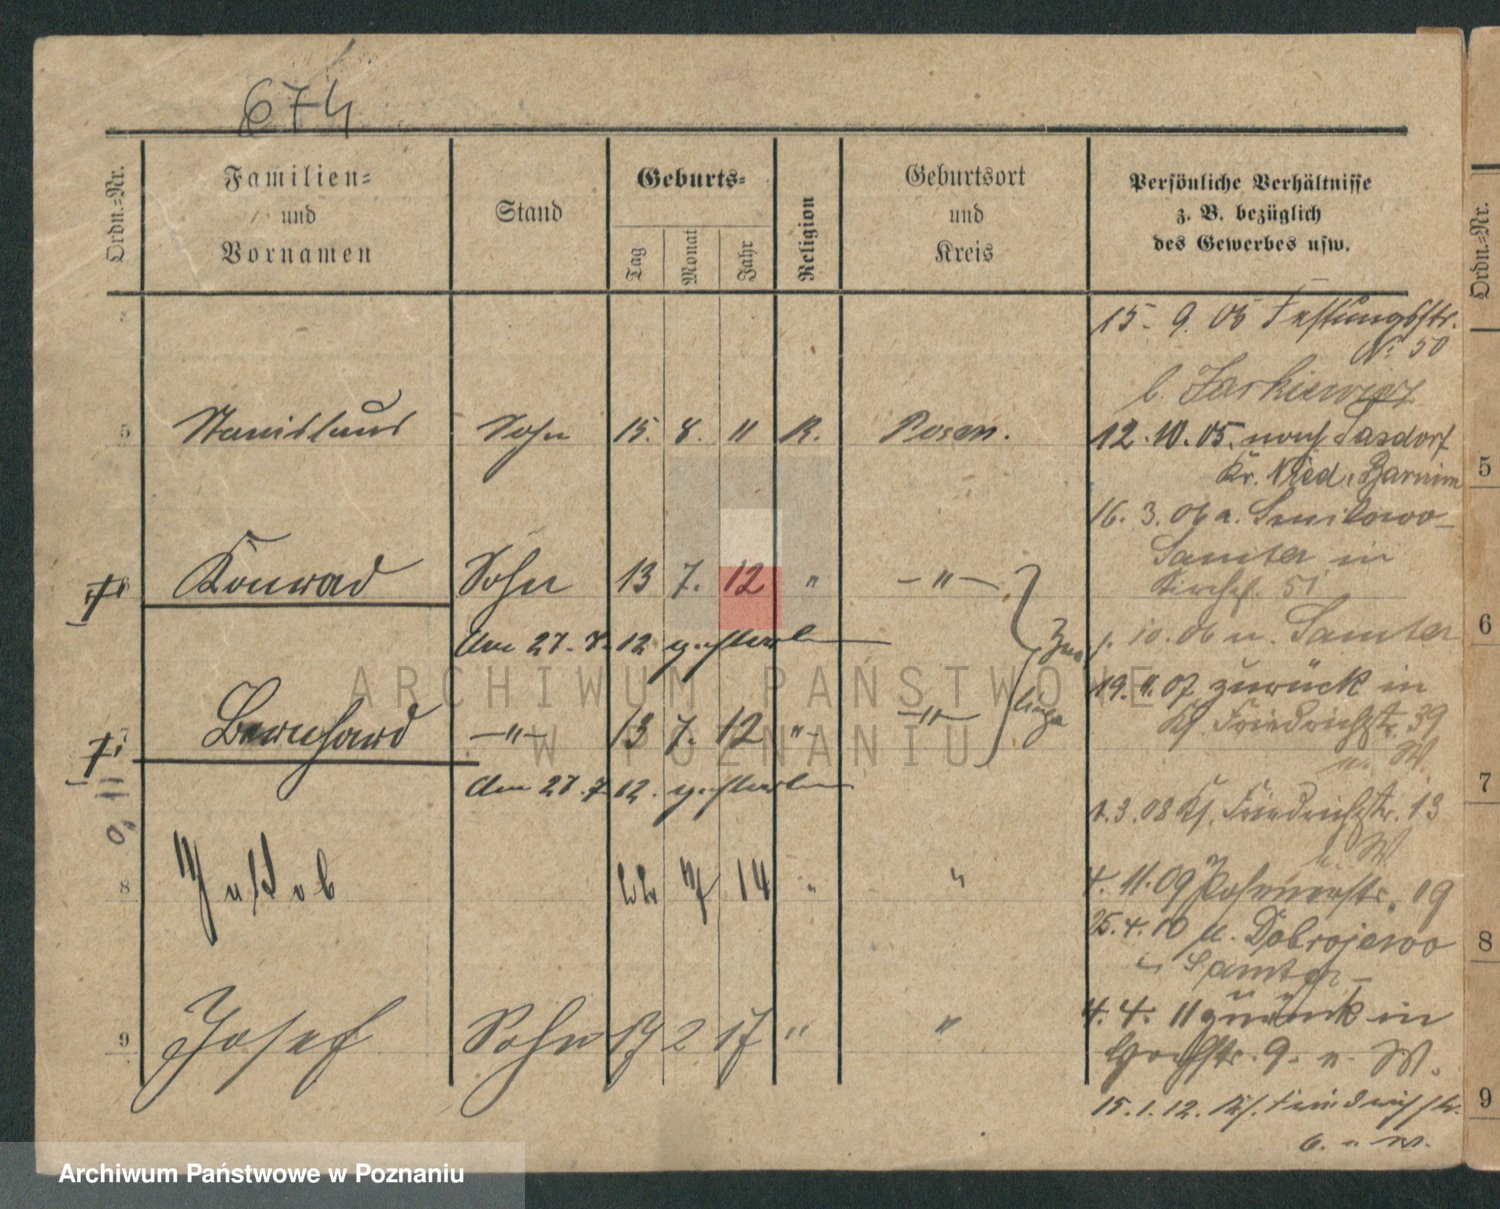 674
Ordn.=Nr.
Familien=
und
Vornamen
Stand
Geburts=
Tag
Monat
Jahr
Religion
Geburtsort
und
Kreis
Persönliche Verhältnisse
z. B. bezüglich
des Gewerbes usw.
Ordn.=Nr.
15. 9. 05 Festungsstr.
No 50
b.
5 Stanislaus Sohn 15. 8. 11 K. Posen.
12. 10. 05. nach Tasdorf
Kr. Nied. Barnim
5
16. 3. 06 a.
Samter in
6 Konrad Sohn 13 7. 12 " —"—
51
6
Am 27. 7. 12 gestorben
Zwillinge
10. 06 n. Samter
19. 11. 07 zurück in
7 Bernhard —"— 13 7. 12 " —"—
Kl. Friedrichstr. 39
7
Am 27. 7. 12. gestorben
1. 3. 08 Kl. Friedrichstr. 13
b. W.
8 Jakob 22 7 14 " "
4. 11. 09 19
25. 4. 10 n. Dobrojewo
8
Samter
9 Josef Sohn 17 2 17 " "
4. 4. 11 zurück in
9. b. W.
15. 1. 12. Kl. Friedrichstr.
6. b. W.
9
ARCHIWUM PAŃSTWOWE
W POZNANIU
Archiwum Państwowe w Poznaniu